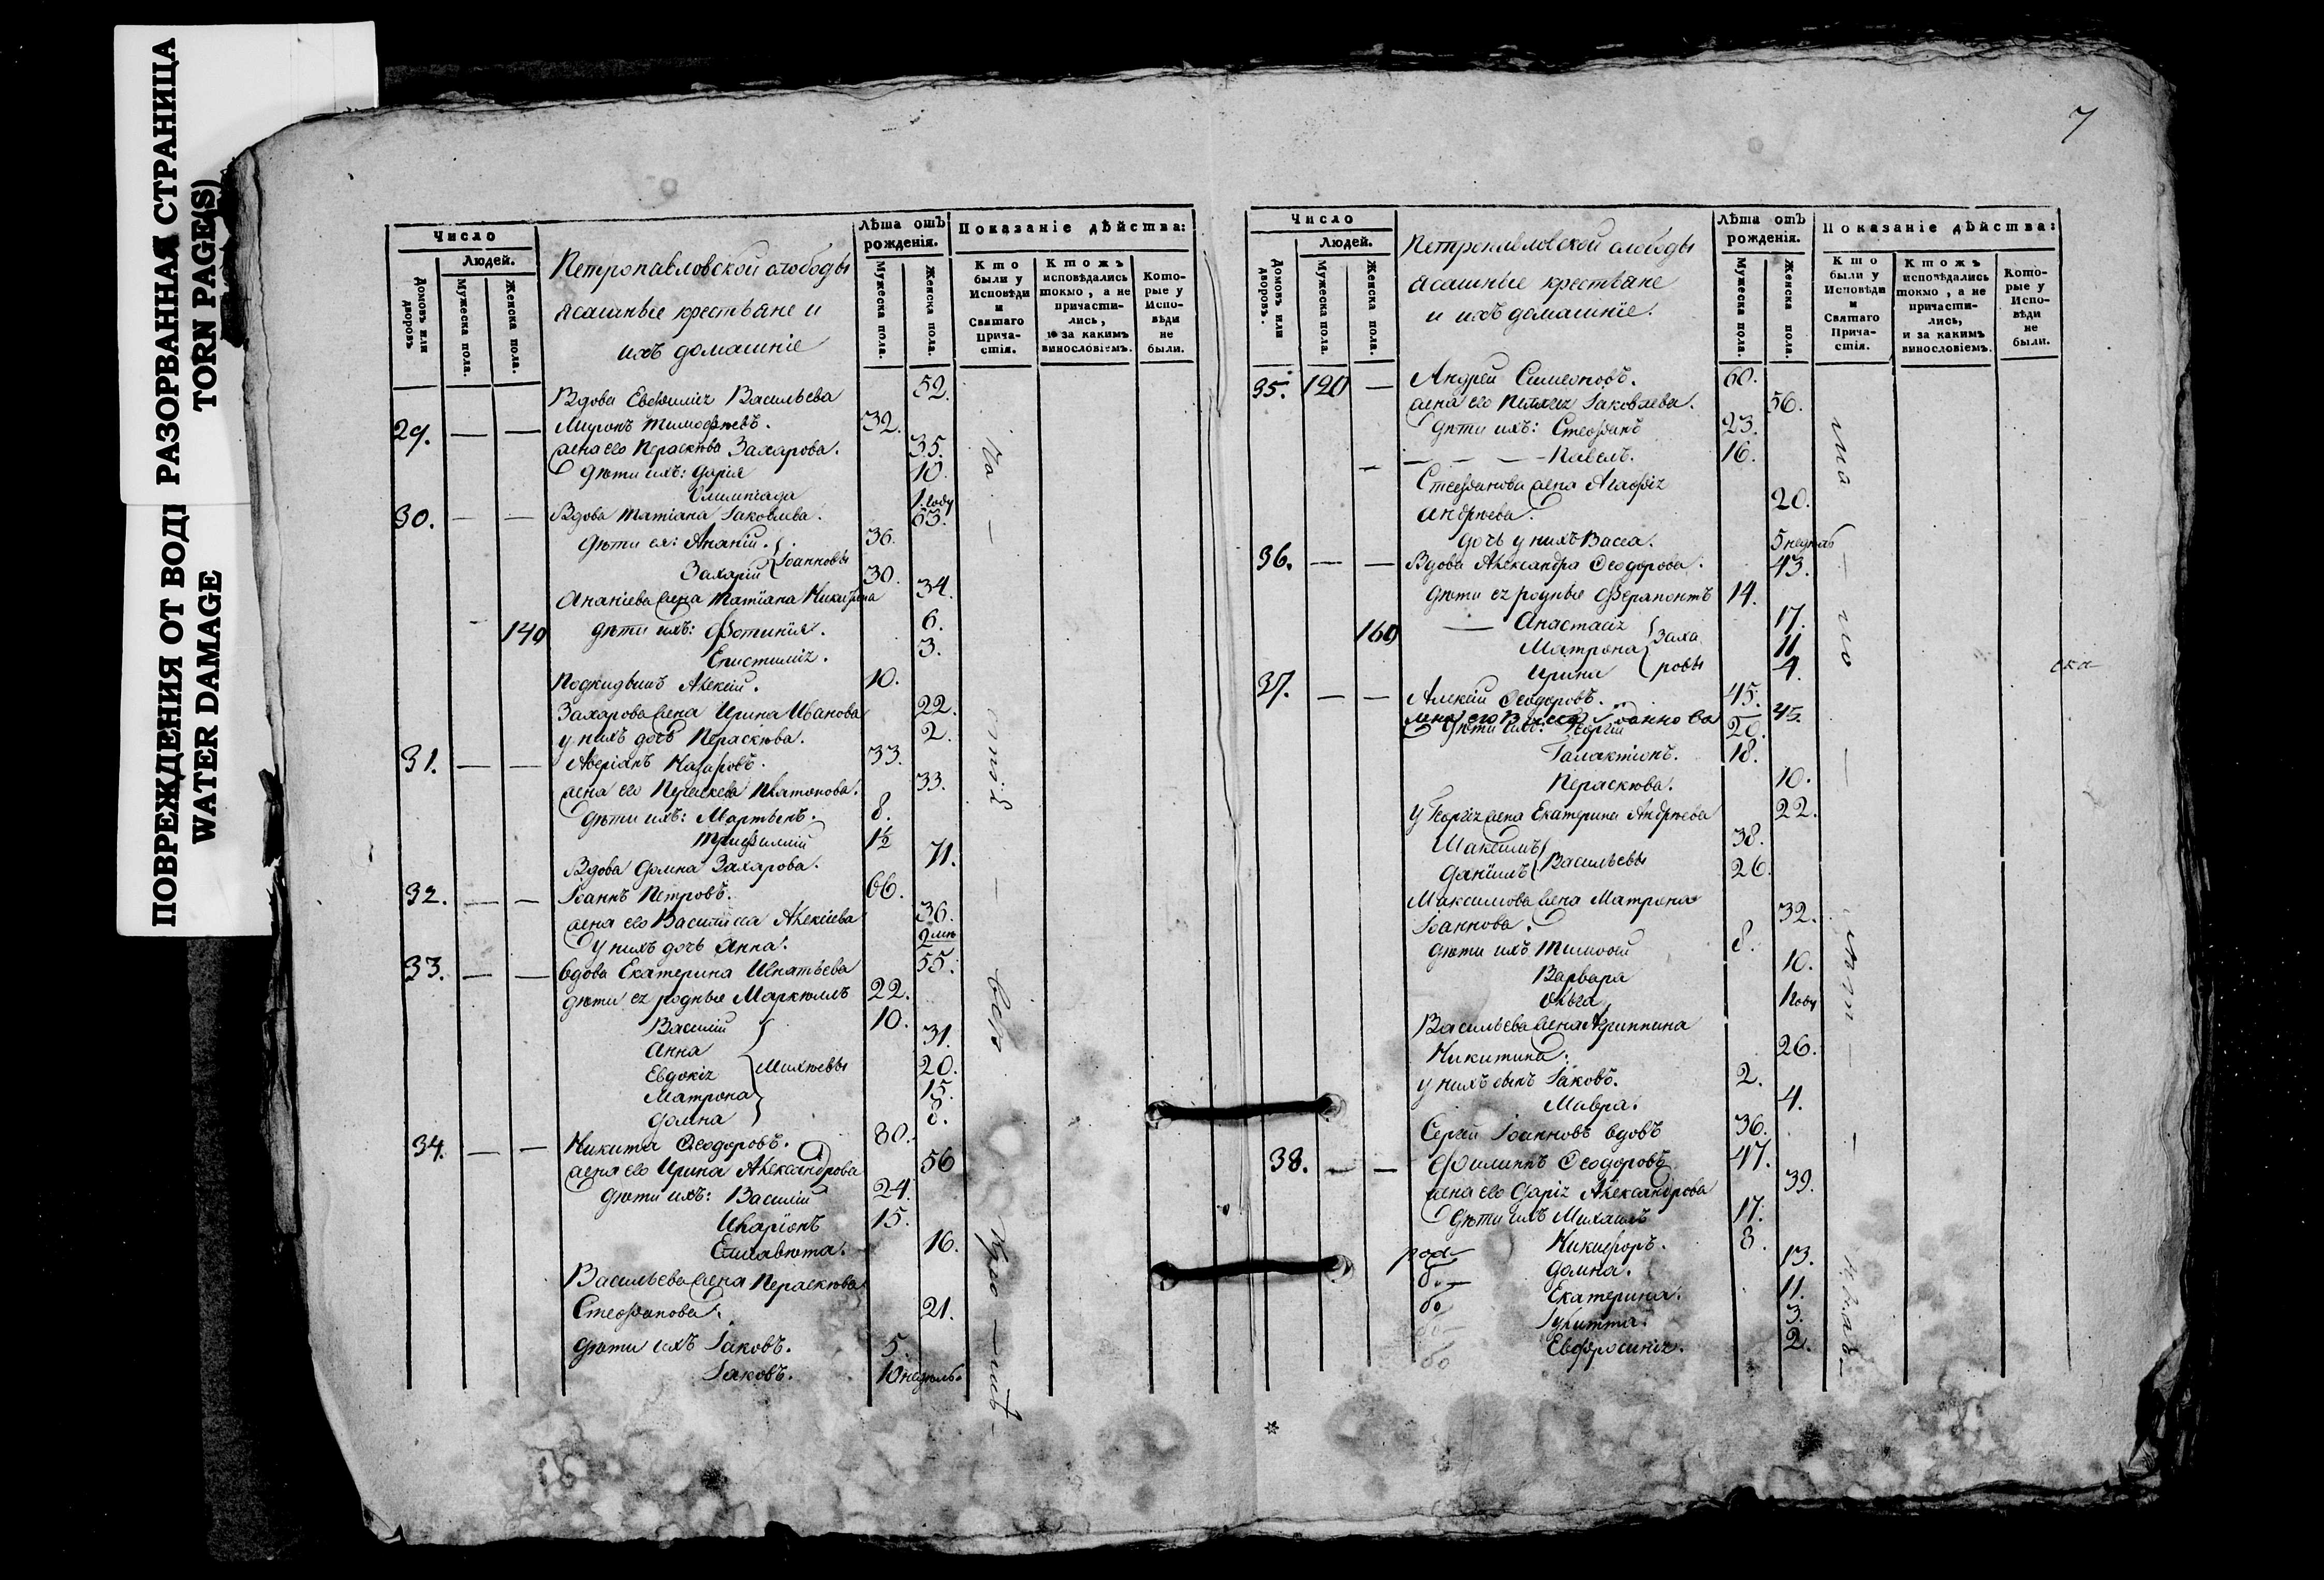 ПОВРЕЖДЕНИЯ ОТ ВОДЫ
WATER DAMAGE
РАЗОРВАННАЯ СТРАНИЦА
TORN PAGE(S)
Число
Людей.
Домовъ или дворовъ
Мужеска пола.
Женска пола.
Петропавловской слободы
ясашные крестьяне и
ихъ домашніе
Лѣта отъ рожденія.
Мужеска пола.
Женска пола.
Показаніе дѣйства:
Кто были у Исповѣди и Святаго Прича-стія.
Ктожъ исповѣдались токмо, а не причасти-лись, и за какимъ винословіемъ.
Кото-рые у Испо-вѣди не были.
Вдова Евфимія Васильева 52.
29. — — Миронъ Тимофѣевъ. 32.
жена его Параскѣва Захарова. 35.
Дѣти ихъ: Дарія 10.
Олимпіада 1 году
30. — — Вдова Татіана Іаковлева. 63.
Дѣти ея: Ананій. 36.
Захарій Іоанновы 30.
Ананіева жена Татіана Никифорова 34.
140 Дѣти ихъ: Фотинія. 6.
Епистимія. 3.
Подкидышъ Алексій. 10.
Захарова жена Ирина Иванова 22.
у нихъ дочь Параскѣва. 2.
31. — — Аверіанъ Назаровъ. 33.
жена его Платонова. 33.
Дѣти ихъ: Мартынъ. 8.
Трифиллій 1½
Вдова Домна Захарова. 71.
32. — — Іоаннъ Петровъ. 66.
жена его Василисса Алексіева 36.
У нихъ дочь Анна. 9
33. — — вдова Екатерина Игнатьева 55.
дѣти ея родные Маркеллъ 22.
Василій 10.
Анна 31.
Евдокія Михѣевы 20.
Матрона 15.
Домна 8.
34. — — Никита Ѳеодоровъ. 80.
жена его Ирина Александрова 56
дѣти ихъ: Василій 24.
Иларіонъ 15.
Елисавета. 16.
Васильева жена Параскѣва
Стефанова. 21.
дѣти ихъ Іаковъ. 5.
Іаковъ. 10 недѣль.
7
Число
Людей.
Домовъ или дворовъ.
Мужеска пола.
Женска пола.
Петропавловской слободы
ясашные крестьяне
и ихъ домашніе.
Лѣта отъ рожденія.
Мужеска пола.
Женска пола.
Показаніе дѣйства:
Кто были у Исповѣди и Святаго Прича-стія.
Ктожъ исповѣдались токмо, а не причасти-лись, и за какимъ винословіемъ.
Кото-рые у Испо-вѣди не были.
35. 120 — Андрей Симеоновъ. 60.
жена его Іаковлева. 56.
Дѣти ихъ: Стефанъ 23.
— — — — Павелъ. 16.
Стефанова жена Агафія
Андрѣева. 20.
дочь у нихъ Васса. 5 недѣль
36. — — Вдова Александра Ѳеодорова. 43.
дѣти ея родные Ферапонтъ 14.
160 — Анастасія 17.
Матрона Заха 11
Ирина ровы 4.
37. — — Алексій Ѳеодоровъ. 45.
жена его Іоаннова 45.
Дѣти ихъ: Георгій 20.
Галактіонъ. 18.
Параскѣва. 10.
У Георгія жена Екатерина Андрѣева 22.
Максимъ 38.
Даніилъ Васильевы 26.
Максимова жена Матрона
Іоаннова. 32.
дѣти ихъ Тимофей 8.
Варвара 10.
Ольга 1 году
Васильева жена Агриппина
Никитина. 26.
у нихъ сынъ Іаковъ. 2.
Мавра. 4.
Сергій Іоанновъ вдовъ 36.
38. — — Филиппъ Ѳеодоровъ 47.
жена его Дарія Александрова 39.
Дѣти ихъ Михаилъ 17.
Никифоръ. 8.
Домна. 13.
Екатерина. 11.
Іулитта. 3.
Евфросинія. 2.